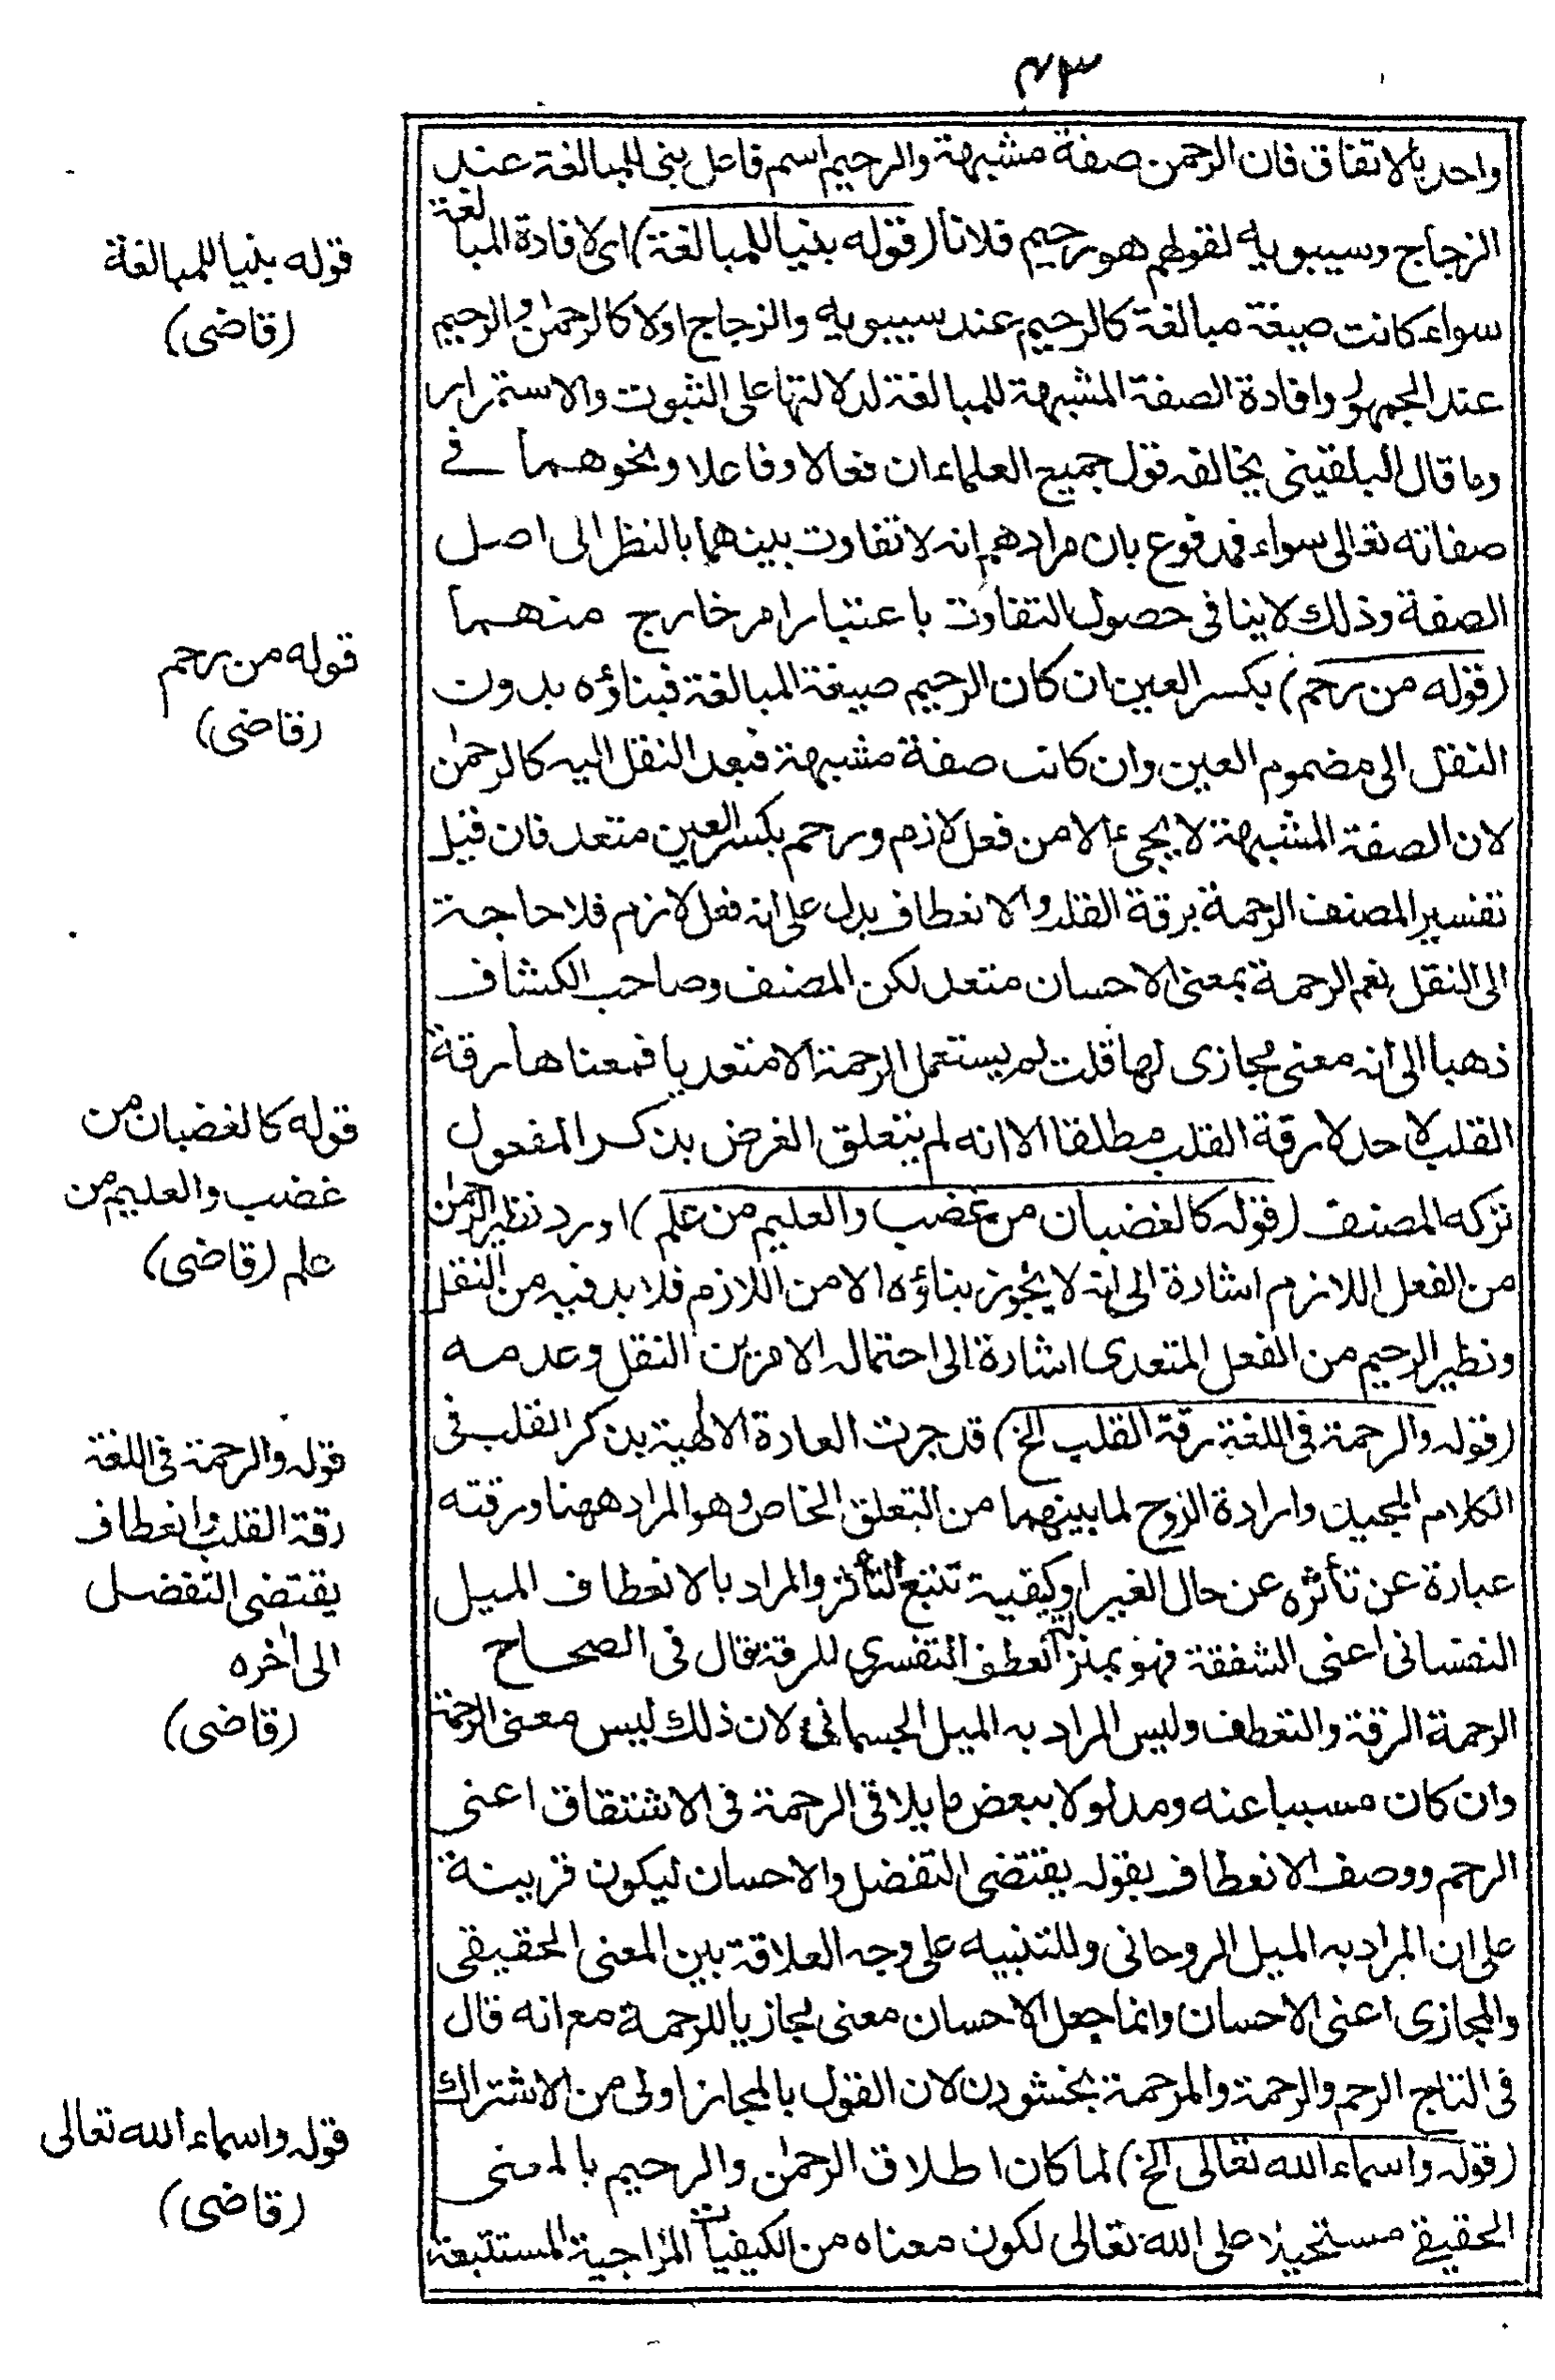 ٤٣
واحد بالاتفاق فان الرحمن صفة مشبهة والرحيم اسم فاعل بنى للمبالغة عند
الزجاج وسيبويه لقولهم هو رحيم فلانا (قوله بنيا للمبالغة) اى لافادة المبالغة
سواء كانت صيغة مبالغة كالرحيم عند سيبويه والزجاج اولا كالرحمن والرحيم
عند الجمهور وافادة الصفة المشبهة للمبالغة لدلالتها على الثبوت والاستمرار
وما قال البلقينى يخالفه قول جميع العلماء ان فعالا وفاعلا ونحوهما فے
صفاته تعالى سواء فمدفوع بان مرادهم انه لا تفاوت بينهما بالنظر الى اصل
الصفة وذلك لاينافى حصول التفاوت باعتبار امر خارج منهما
(قوله من رحم) بكسر العين ان كان الرحيم صيغة المبالغة فبناؤه بدون
النقل الى مضموم العين وان كانت صفة مشبهة فبعد النقل اليه كالرحمن
لان الصفة المشبهة لا يجئ الا من فعل لازم ورحم بكسر العين متعد فان قيل
تفسير المصنف الرحمة برقة القلب والانعطاف يدل على انه فعل لازم فلا حاجة
الى النقل نعم الرحمة بمعنى الاحسان متعد لكن المصنف وصاحب الكشاف
ذهبا الى انه معنى مجازى لها قلت لم يستعمل الرحمة الا متعديا فمعناها رقة
القلب لاحد لا رقة القلب مطلقا الا انه لم يتعلق الغرض بذكر المفعول
تركه المصنف (قوله كالغضبان من غضب والعليم من علم) اورد نظير الرحمن
من الفعل اللازم اشارة الى انه لا يجوز بناؤه الا من اللازم فلا بد فيه من النقل
ونظير الرحيم من الفعل المتعدى اشارة الى احتماله الامرين النقل وعدمه
(قوله والرحمة فى اللغة رقة القلب الخ) قد جرت العادة الالهية بذكر القلب فى
الكلام المجيد وارادة الروح لما بينهما من التعلق الخاص وهو المراد ههنا ورقته
عبارة عن تأثره عن حال الغير او كيفية تتبع التأثر والمراد بالانعطاف الميل
النفسانى اعنى الشفقة فهو بمنزلة العطف التفسيرى للرقة قال فى الصحاح
الرحمة الرقة والتعطف وليس المراد به الميل الجسمانى لان ذلك ليس معنى الرحمة
وان كان مسببا عنه ومدلولا ببعض ما يلاقى الرحمة فى الاشتقاق اعنى
الرحم ووصف الانعطاف بقوله يقتضى التفضل والاحسان ليكون قرينة
على ان المراد به الميل الروحانى وللتنبيه على وجه العلاقة بين المعنى الحقيقى
والمجازى اعنى الاحسان وانما جعل الاحسان معنى مجازيا للرحمة مع انه قال
فى التاج الرحم والرحمة والمرحمة بخشودن لان القول بالمجاز اولى من الاشتراك
(قوله واسماء الله تعالى الخ) لما كان اطلاق الرحمن والرحيم بالمعنى
الحقيقے مستحيلا على الله تعالى لكون معناه من الكيفيات المزاجية المستتبعة
قوله بنيا للمبالغة
(قاضى)
قوله من رحم
(قاضى)
قوله كالغضبان من
غضب والعليم من
علم (قاضى)
قوله والرحمة فى اللغة
رقة القلب وانعطاف
يقتضى التفضل
الى اخره
(قاضى)
قوله واسماء الله تعالى
(قاضى)